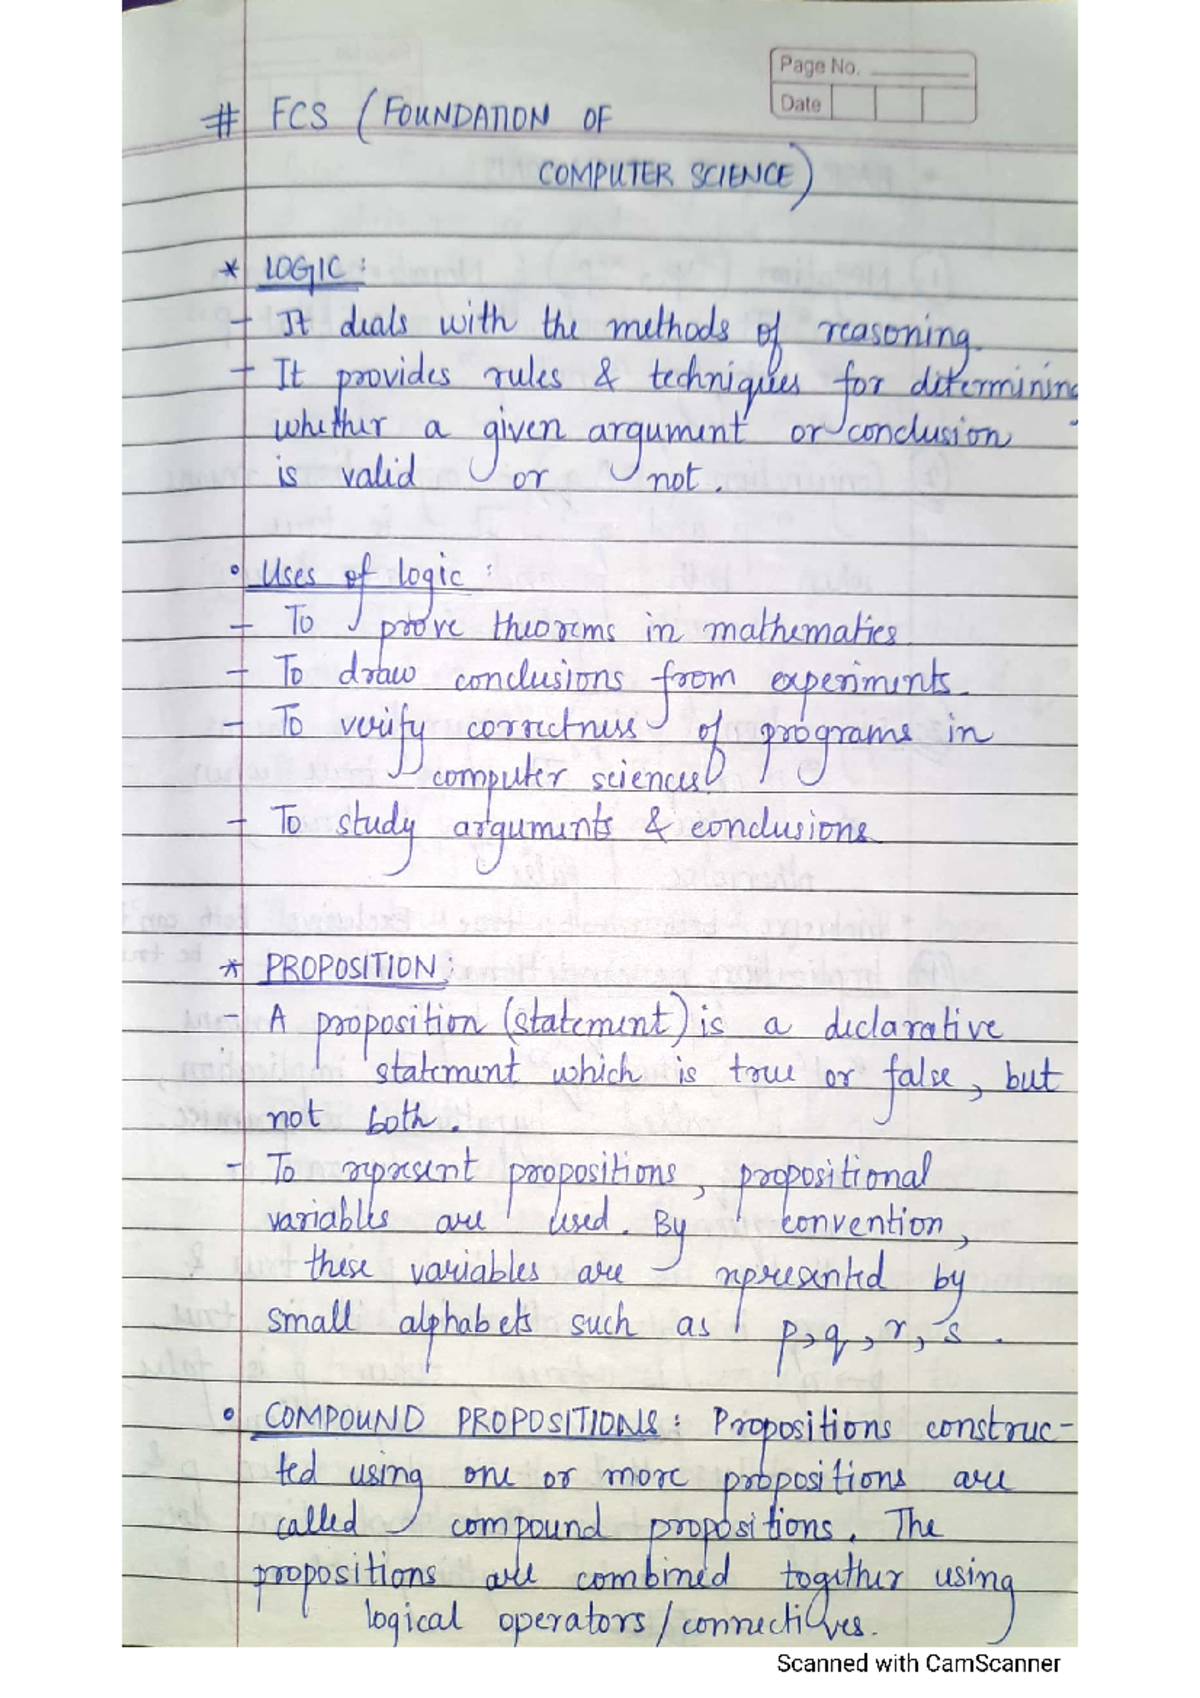 Page No.
Date
# FCS (FOUNDATION OF
COMPUTER SCIENCE)
* LOGIC :
- It deals with the methods of reasoning.
- It provides rules & techniques for determining
whether a given argument or conclusion
is valid or not.
• Uses of logic :
- To prove theorems in mathematics.
- To draw conclusions from experiments.
- To verify correctness of programs in
computer sciences
- To study arguments & conclusions
* PROPOSITION :
- A proposition (statement) is a declarative
statement which is true or false, but
not both.
- To represent propositions, propositional
variables are used. By convention,
these variables are represented by
small alphabets such as p, q, r, s.
• COMPOUND PROPOSITIONS : Propositions construc-
ted using one or more propositions are
called compound propositions. The
propositions are combined together using
logical operators / connectives.
Scanned with CamScanner